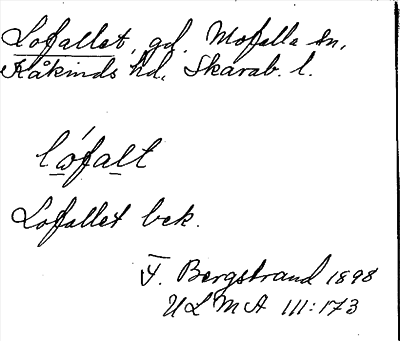 Lofallet, gd. Mofalla sn,
Kåkinds hd, Skarab. l.
lo̲´fa̲lt
Lofallet bek.
F. Bergstrand 1898
ULMA 111:173